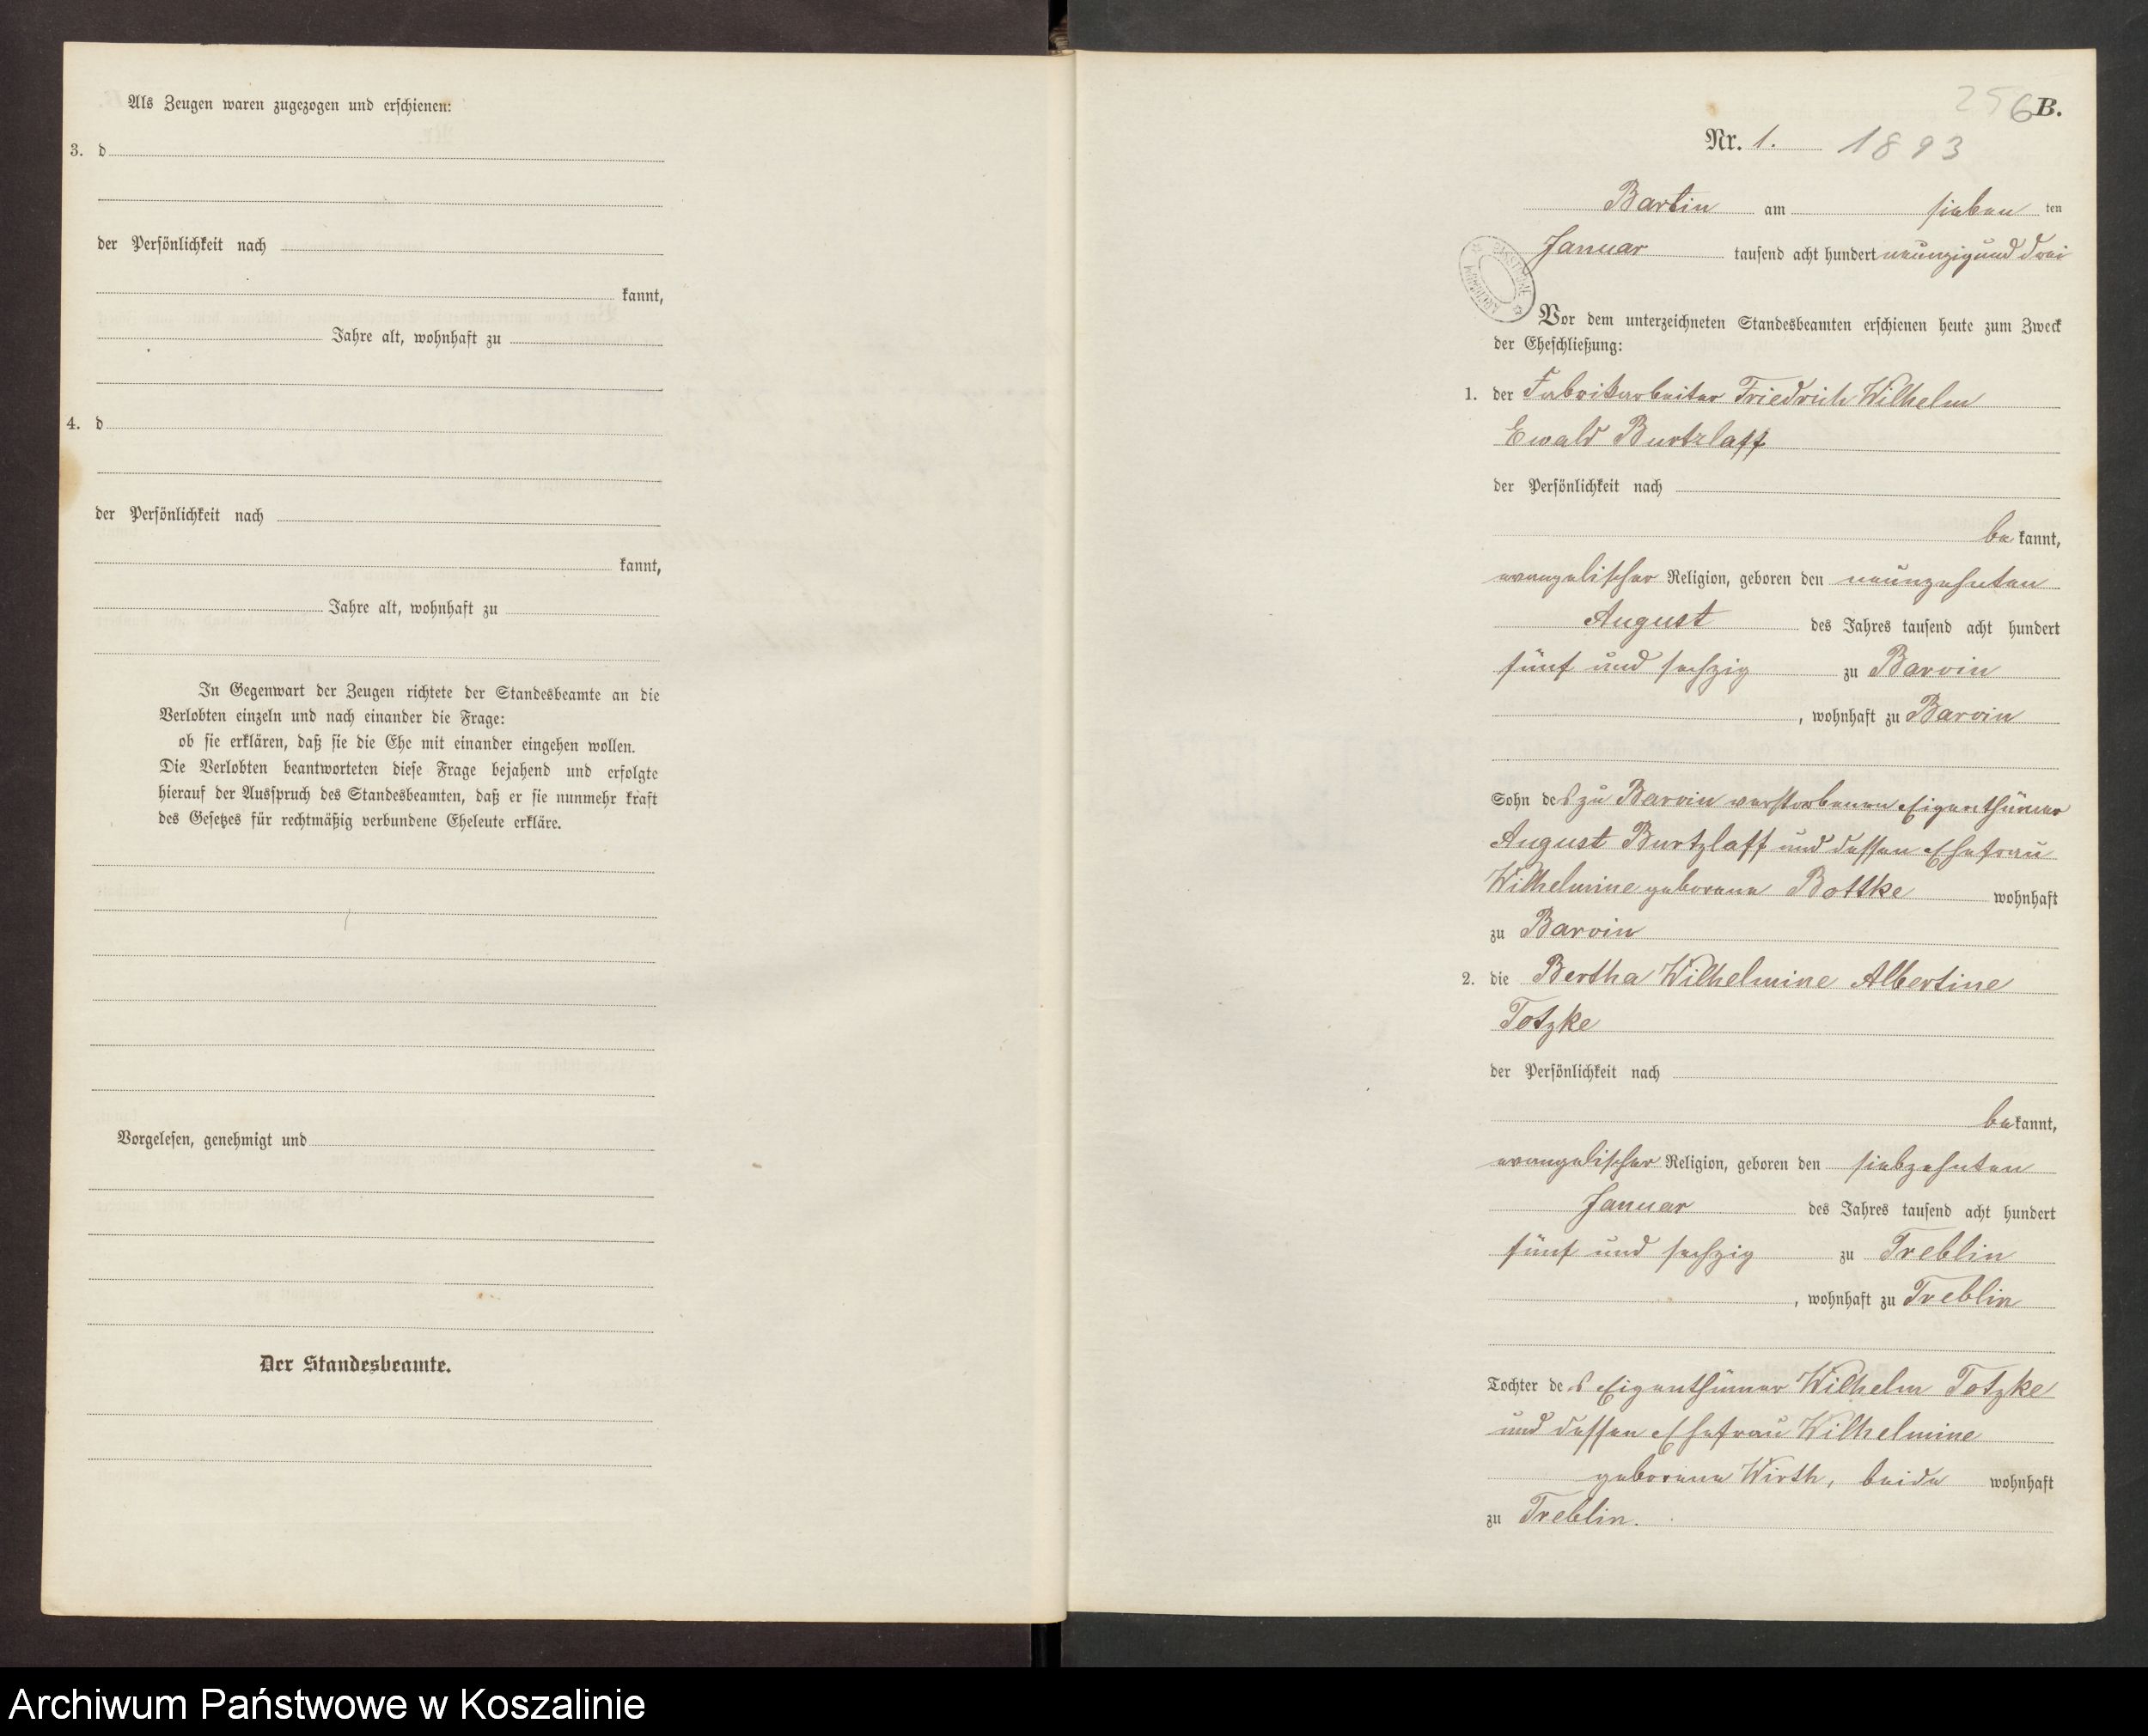 Als Zeugen waren zugezogen und erschienen:
3. d
der Persönlichkeit nach
kannt,
Jahre alt, wohnhaft zu
4. d
der Persönlichkeit nach
kannt,
Jahre alt, wohnhaft zu
In Gegenwart der Zeugen richtete der Standesbeamte an die
Verlobten einzeln und nach einander die Frage:
ob sie erklären, daß sie die Ehe mit einander eingehen wollen.
Die Verlobten beantworteten diese Frage bejahend und erfolgte
hierauf der Ausspruch des Standesbeamten, daß er sie nunmehr kraft
des Gesetzes für rechtmäßig verbundene Eheleute erkläre.
Vorgelesen, genehmigt und
Der Standesbeamte.
256 B.
Nr. 1. 1893
Bartin am sieben ten
Januar tausend acht hundert neunzig und drei
Vor dem unterzeichneten Standesbeamten erschienen heute zum Zweck
der Eheschließung:
1. der Fabrikarbeiter Friedrich Wilhelm
Ewald Burtzlaff
der Persönlichkeit nach
be kannt,
evangelischer Religion, geboren den neunzehnten
August des Jahres tausend acht hundert
fünf und sechzig zu Barvin
, wohnhaft zu Barvin
Sohn des zu Barvin verstorbenen Eigenthümer
August Burtzlaff und dessen Ehefrau
Wilhelmine geborene Bottke wohnhaft
zu Barvin
2. die Bertha Wilhelmine Albertine
Totzke
der Persönlichkeit nach
bekannt,
evangelischer Religion, geboren den siebzehnten
Januar des Jahres tausend acht hundert
fünf und sechzig zu Treblin
, wohnhaft zu Treblin
Tochter des Eigenthümer Wilhelm Totzke
und dessen Ehefrau Wilhelmine
geborene Wirth, beide wohnhaft
zu Treblin.
Archiwum Państwowe w Koszalinie